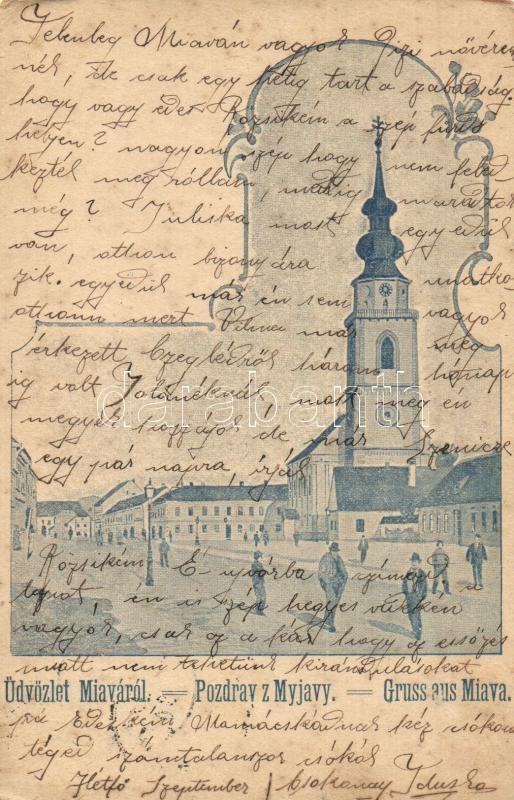 Jelenleg Miaván vagyok Gizi nővérem
nél, de csak egy hétig tart a szabadság.
hogy vagy édes Rózsikám a szép fürdő
helyen? nagyon szép hogy nem feled
keztél meg rólam, meddig maradtok
még? Juliska most egyedül
van, otthon bizonyára unatko
zik egyedül már én sem vagyok
otthon mert Vilma már meg
érkezett Czeglédről három hónap
ig volt Jolánéknál, most meg én
megyek hozzájok de már Szenicre
egy pár napra, írjál
Rózsikám É-ujvárba címezd a
lapot, én is szép hegyes vidéken
vagyok, csak az a kár hogy az esőzés
miatt nem tehetünk kirándulásokat
Üdvözlet Miaváról. — Pozdrav z Myjavy. — Gruss aus Miava.
Édes Mamácskádnak kéz csókom
téged számtalanszor csókol
Hetfő September Csokonay Iduska
darabanth